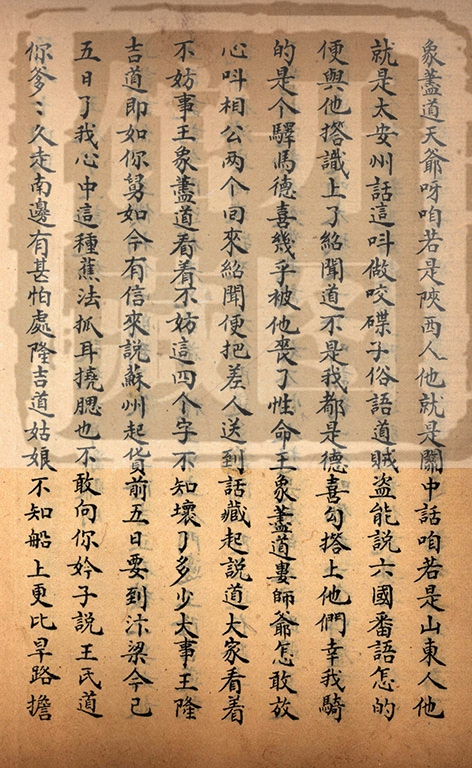 象藎道天爺呀咱若是陜西人他就是關中話咱若是山東人他
就是太安州話這呌做咬碟子俗語道賊盜能說六國番語怎的
便與他搭識上了紹聞道不是我都是德喜勾搭上他們幸我騎
的是个驛馬德喜幾乎被他喪了性命王象藎道婁師爺怎敢放
心呌相公两个回來紹聞便把差人送到話藏起說道大家看着
不妨事王象藎道看着不妨這四个字不知壞了多少大事王隆
吉道即如你舅如今有信來說蘇州起貨前五日要到汴梁今已
五日了我心中這種蕉法抓耳撓腮也不敢向你妗子說王氏道
你爹〻久走南邊有甚怕處隆吉道姑娘不知船上更比旱路擔